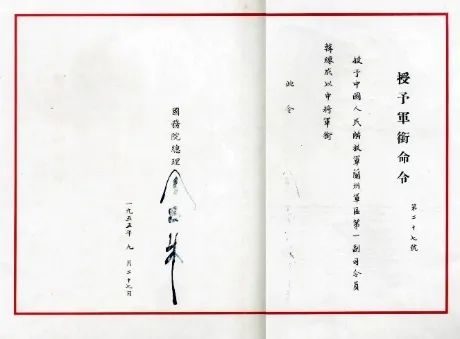 授予軍銜命令
第二十七號
授予中國人民解放軍蘭州軍區第一副司令員
韓練成以中將軍銜
此令
國務院總理
周恩来
一九五五年九月二十七日